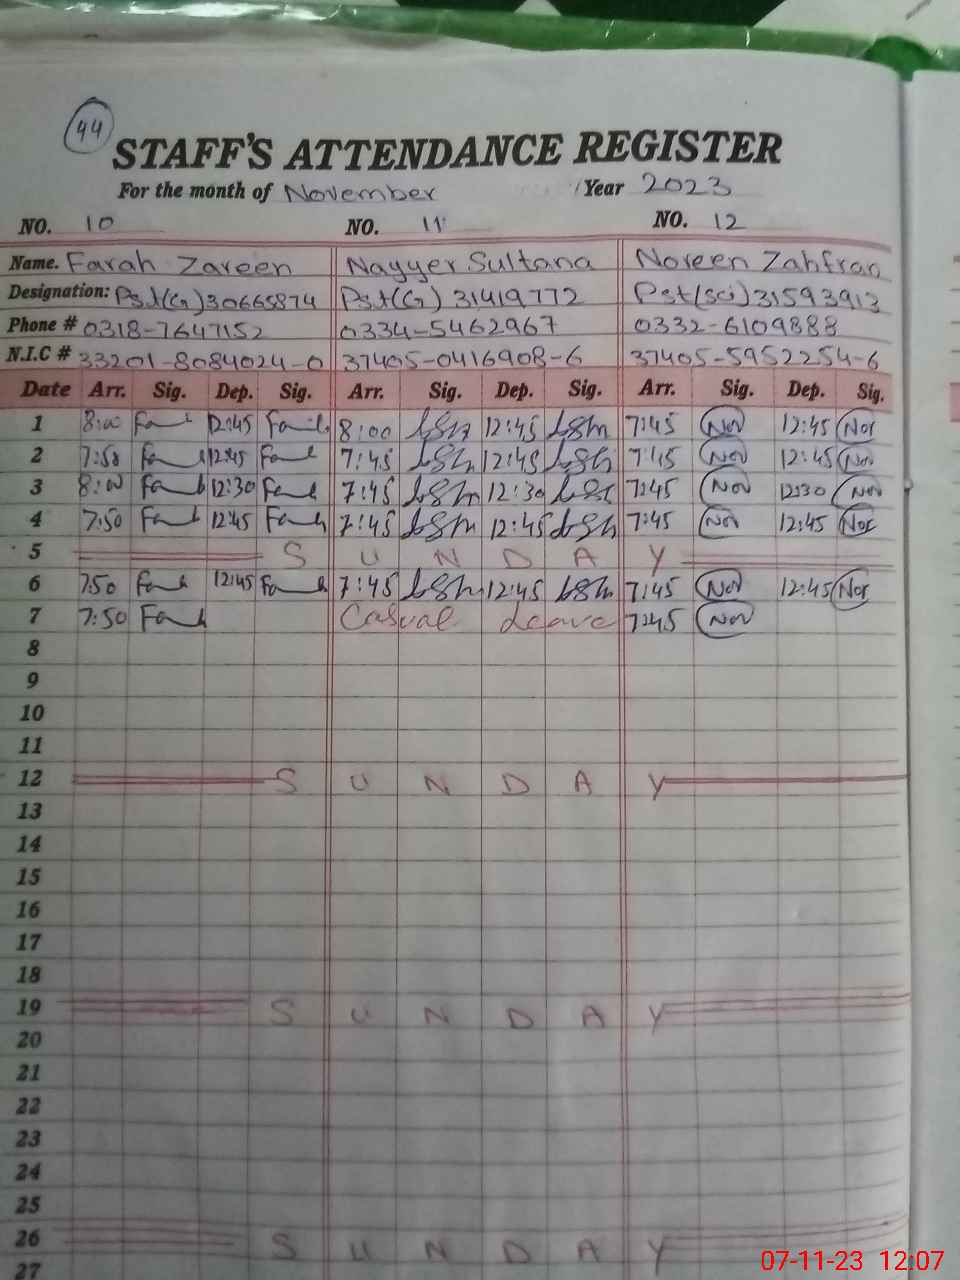 44
STAFF'S ATTENDANCE REGISTER
For the month of November Year 2023
NO. 10 NO. 11 NO. 12
Name. Farah Zareen Nayyer Sultana Noreen Zahfran
Designation: Pst(G)30665874 Pst(G) 31419772 Pst(sci)31593913
Phone # 0318-7647152 0334-5462967 0332-6109888
N.I.C # 33201-8084024-0 37405-0416908-6 37405-5952254-6
Date Arr. Sig. Dep. Sig. Arr. Sig. Dep. Sig. Arr. Sig. Dep. Sig.
1 8:00 12:45 8:00 12:45 7:45 Nor 12:45 Nor
2 7:50 12:45 7:45 12:45 7:45 Nor 12:45 Nor
3 8:00 12:30 7:45 12:30 7:45 Nor 12:30 Nor
4 7:50 12:45 7:45 12:45 7:45 Nor 12:45 Nor
5 S U N D A Y
6 7:50 12:45 7:45 12:45 7:45 Nor 12:45 Nor
7 7:50 Casual Leave 7:45 Nor
8
9
10
11
12 S U N D A Y
13
14
15
16
17
18
19 S U N D A Y
20
21
22
23
24
25
26 S U N D A Y
27
07-11-23 12:07